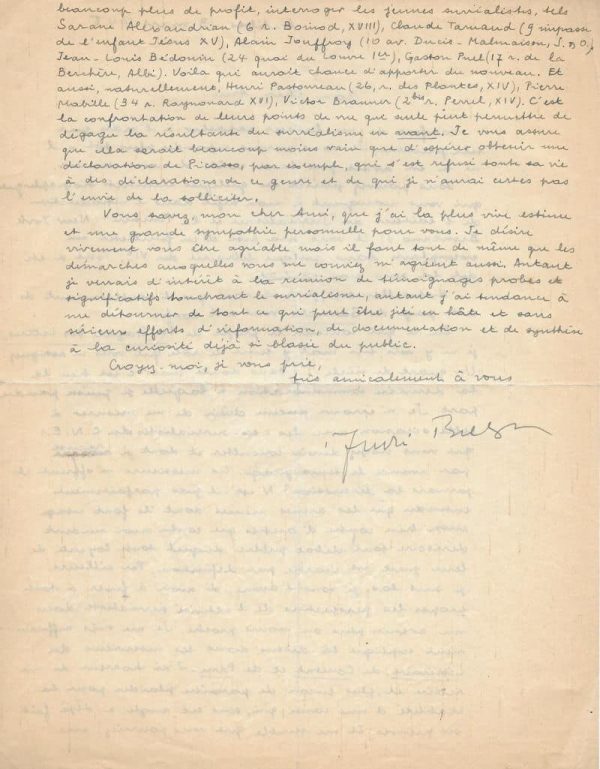 beaucoup plus de profit, interroger les jeunes surréalistes, tels
Sarane Alexandrian (6 r. Boinod, XVIII), Claude Tarnaud (9 impasse
de l'enfant Jésus XV), Alain Jouffroy (10 av. Ducis - Malmaison, S. & O.,
Jean-Louis Bédouin (24 quai du Louvre 1er), Gaston Puel (17 r. de la
Berchère, Albi). Voilà qui aurait chance d'apporter du nouveau. Et
aussi, naturellement, Henri Pastoureau (26, r. des Plantes, XIV), Pierre
Mabille (34 r. Raynouard XVI), Victor Brauner (2bis r. Perrel, XIV). C'est
la confrontation de leurs points de vue que seule peut permettre de
dégager la résultante du surréalisme en avant. Je vous assure
que cela serait beaucoup moins vain que d'espérer obtenir une
déclaration de Picasso, par exemple, qui s'est refusé toute sa vie
à des déclarations de ce genre et de qui je n'aurai certes pas
l'envie de la solliciter.
Vous savez, mon cher Ami, que j'ai la plus vive estime
et une grande sympathie personnelle pour vous. Je désire
vivement vous être agréable mais il faut tout de même que les
démarches auxquelles vous me conviez m'agréent aussi. Autant
je verrais d'intérêt à la réunion de témoignages probes et
significatifs touchant le surréalisme, autant j'ai tendance à
me détourner de tout ce qui peut être jeté en hâte et sans
sérieux efforts d'information, de documentation et de synthèse
à la curiosité déjà si blasée du public.
Croyez-moi, je vous prie,
très amicalement à vous
André Breton